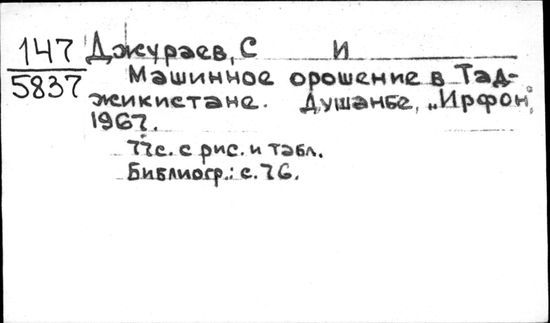 147
5837
Джураев, С И
Машинное орошение в Тад-
жикистане. Душанбе, „Ирфон",
1967.
77с. с рис. и табл.
Библиогр.: с. 76.